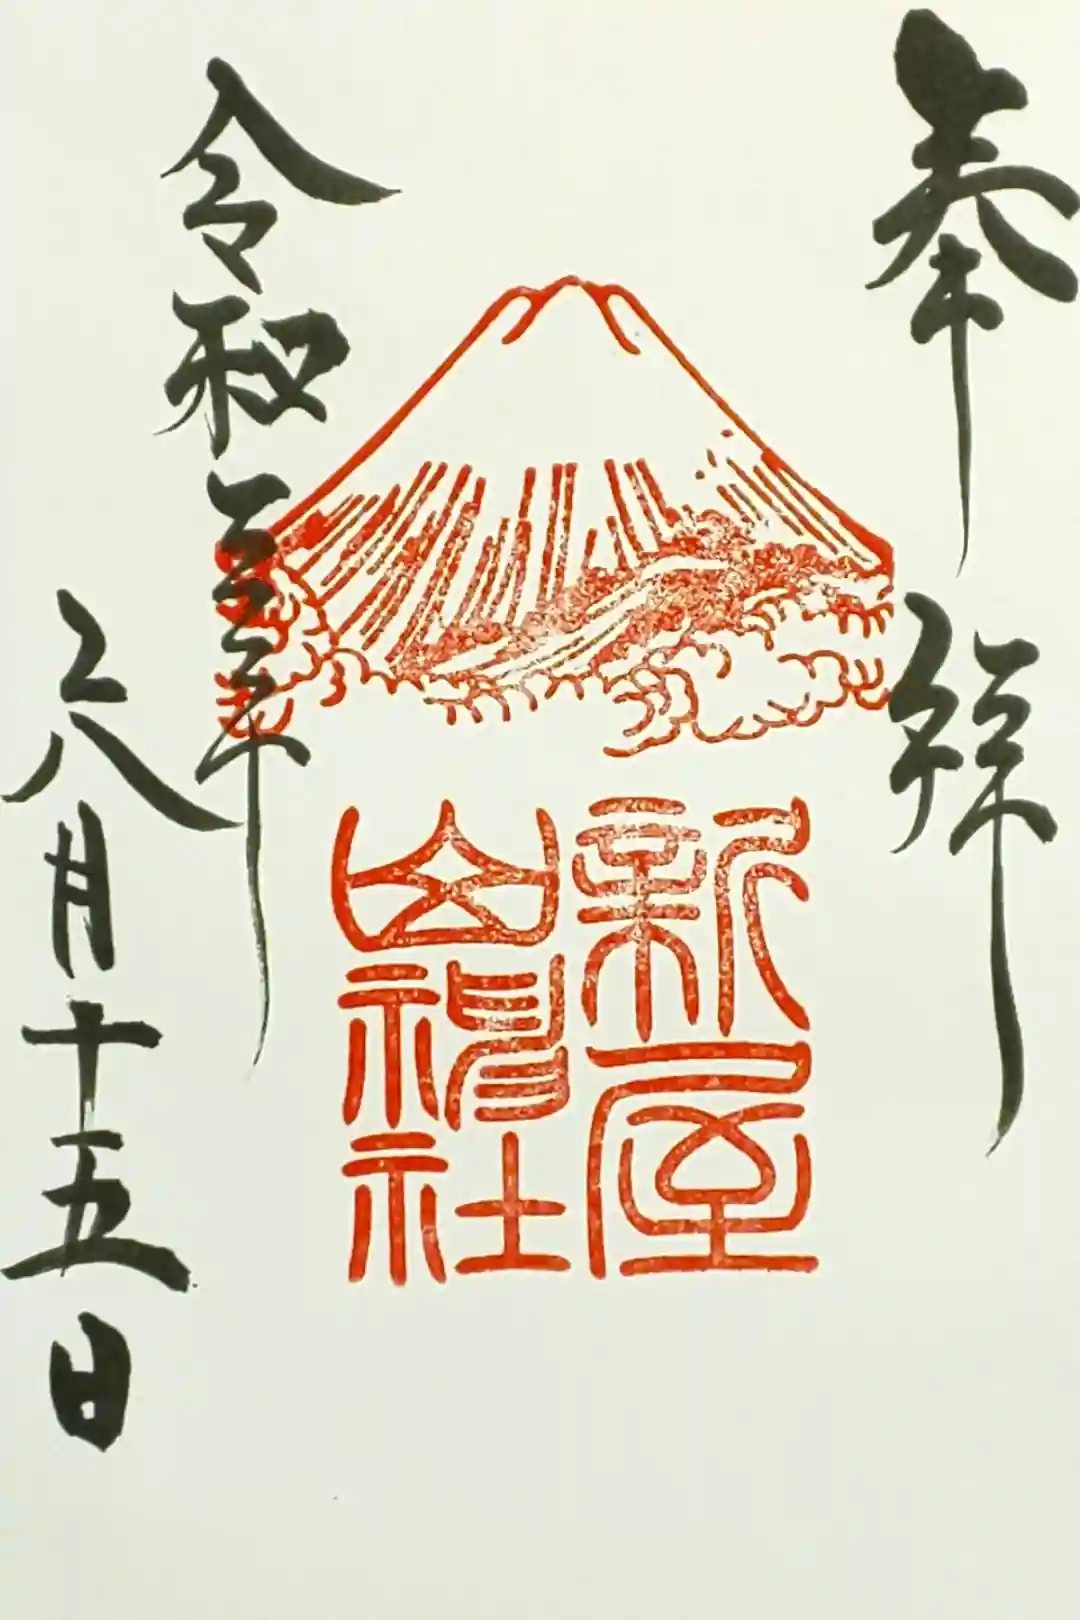 奉拝
新屋
山神社
令和三年
六月十五日